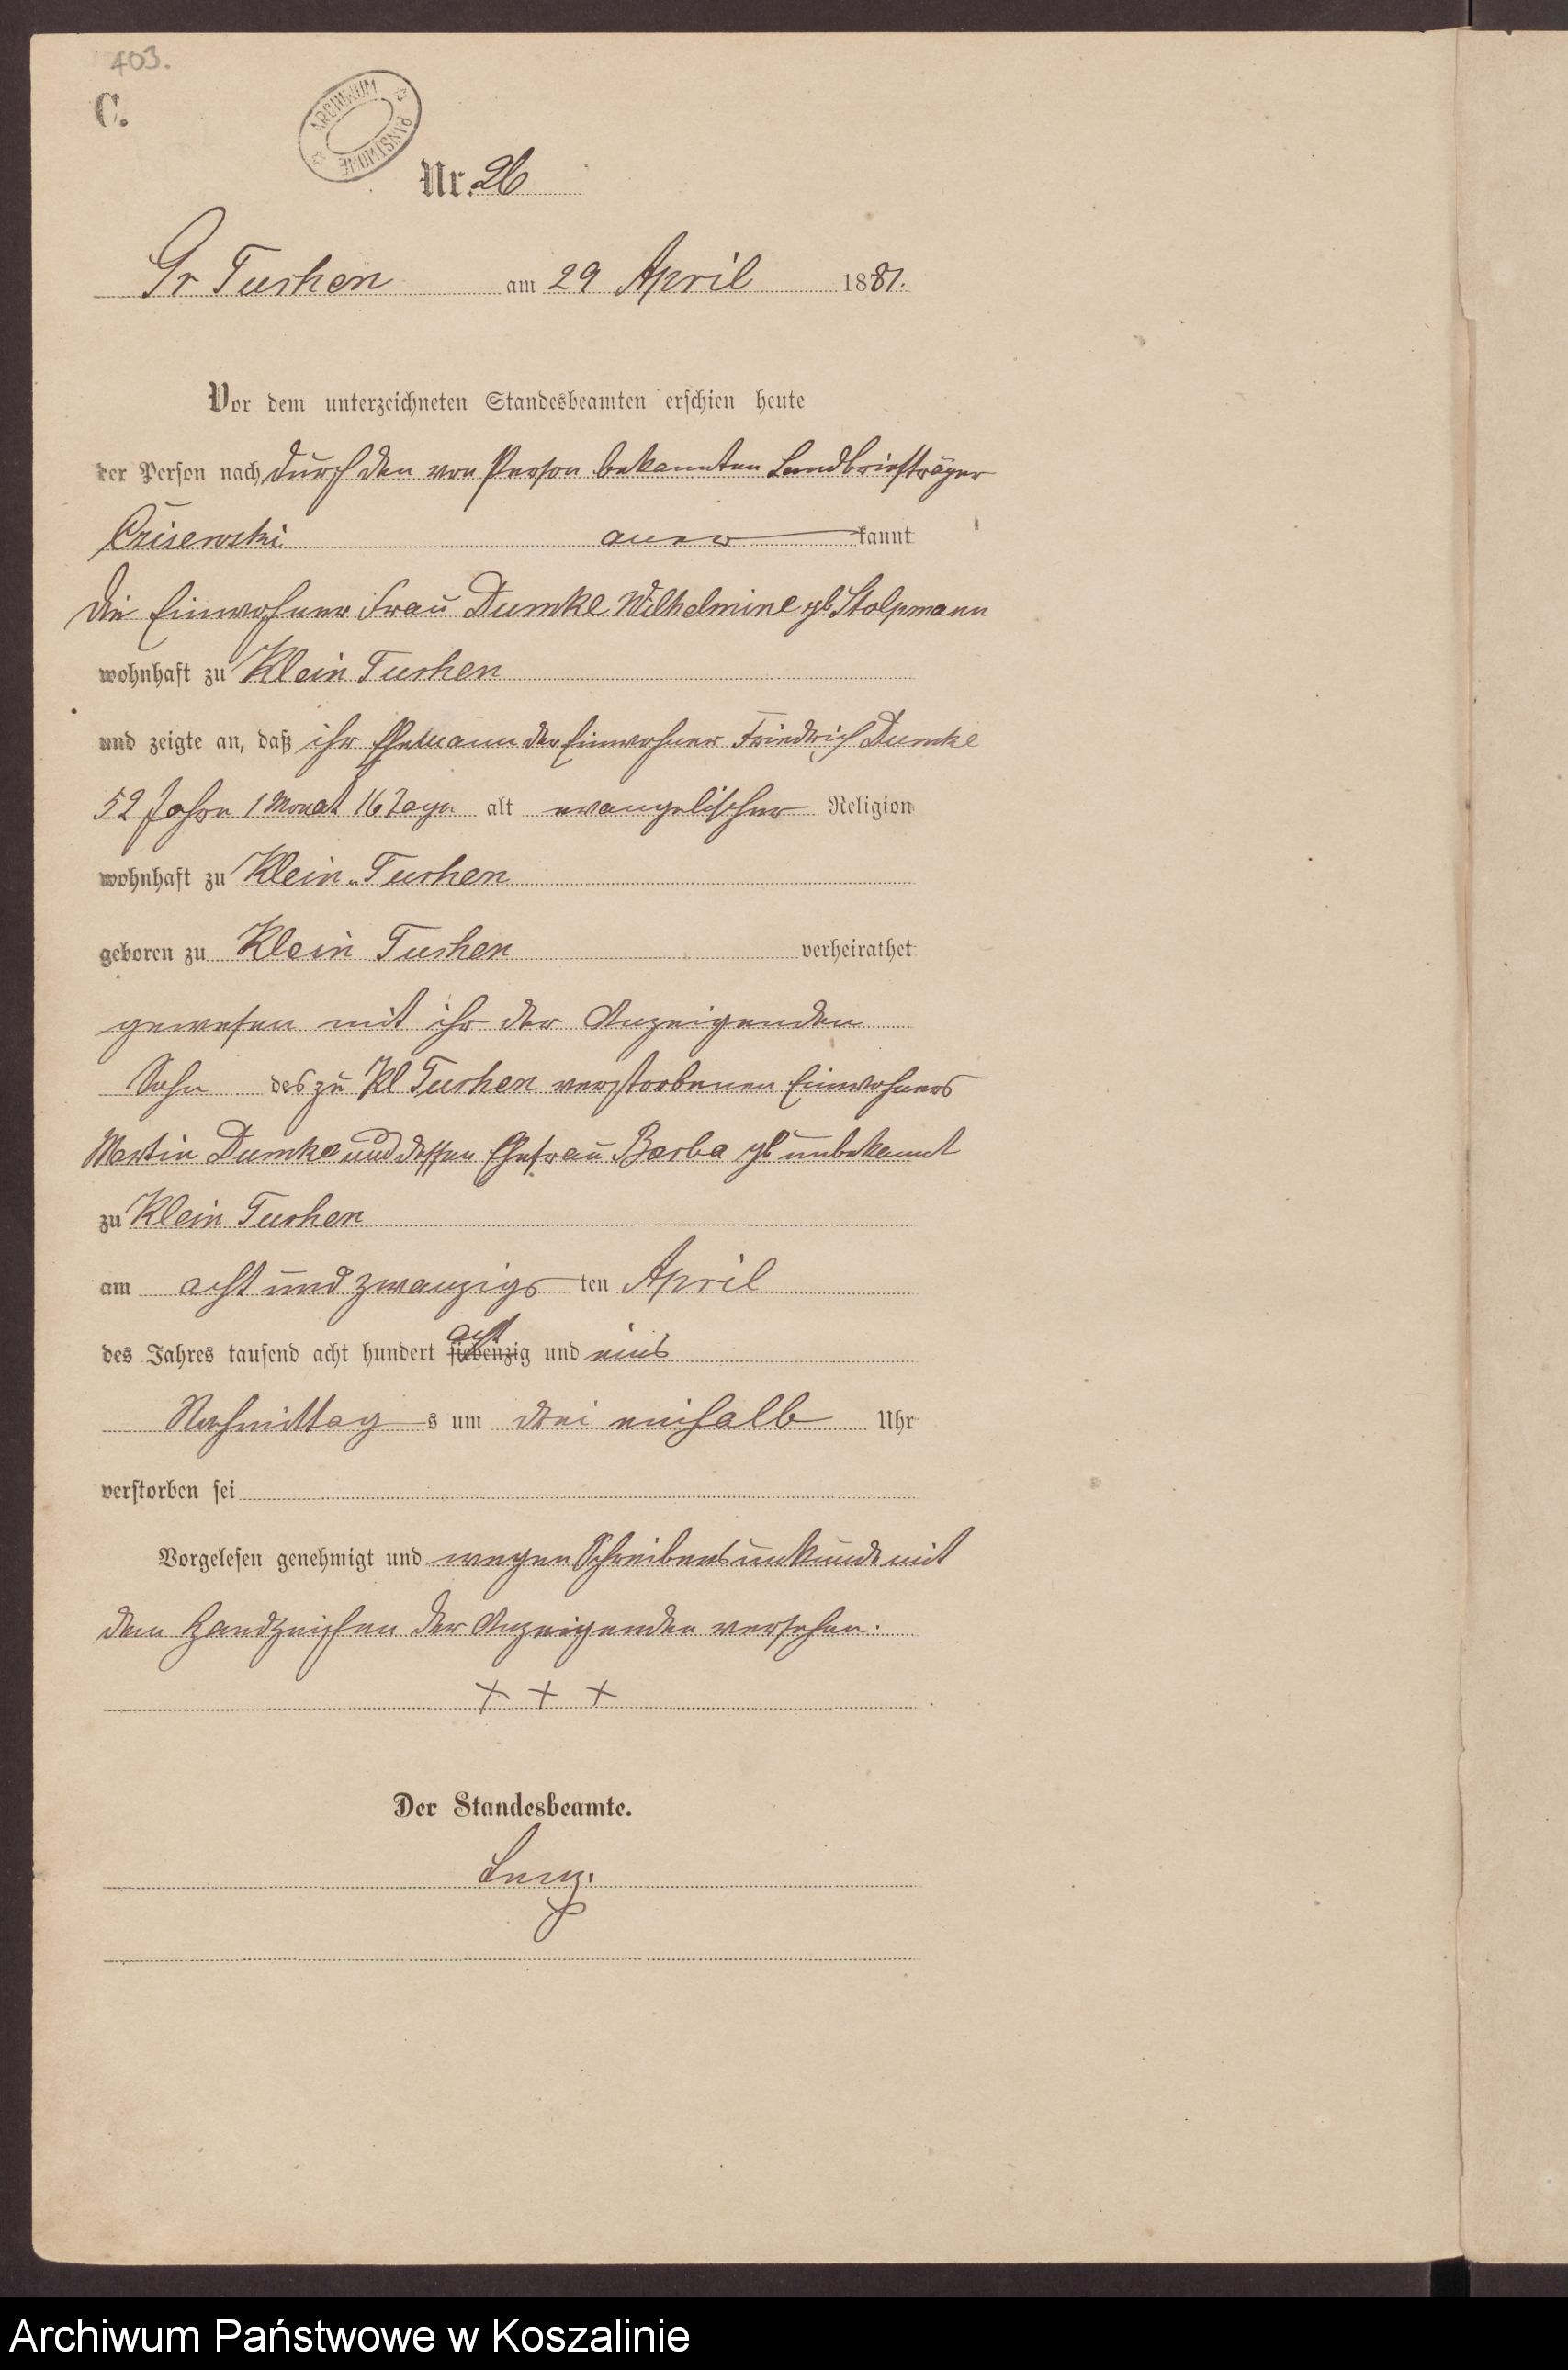 403.
C.
ARCHIWUM PAŃSTWOWE
Nr. 26
Gr Tuchen am 29 April 1881.
Vor dem unterzeichneten Standesbeamten erschien heute
der Person nach durch den von Person bekannten Landbriefträger
Czisewski aner kannt
die Einwohner Frau Dumke Wilhelmine gb. Stolpmann
wohnhaft zu Klein Tuchen
und zeigte an, daß ihr Ehemann der Einwohner Friedrich Dumke
52 Jahre 1 Monat 16 Tage alt evangelischer Religion
wohnhaft zu Klein-Tuchen
geboren zu Klein Tuchen verheirathet
gewesen mit ihr der Anzeigenden
Sohn des zu Kl Tuchen verstorbenen Einwohners
Martin Dumke und dessen Ehefrau Barba gb unbekannt
zu Klein Tuchen
am acht und zwanzigs ten April
des Jahres tausend acht hundert siebenzig acht und eins
Nachmittag s um drei einhalb Uhr
verstorben sei
Vorgelesen genehmigt und wegen Schreibensunkunde mit
dem Handzeichen der Anzeigenden versehen.
+ + +
Der Standesbeamte.
Archiwum Państwowe w Koszalinie